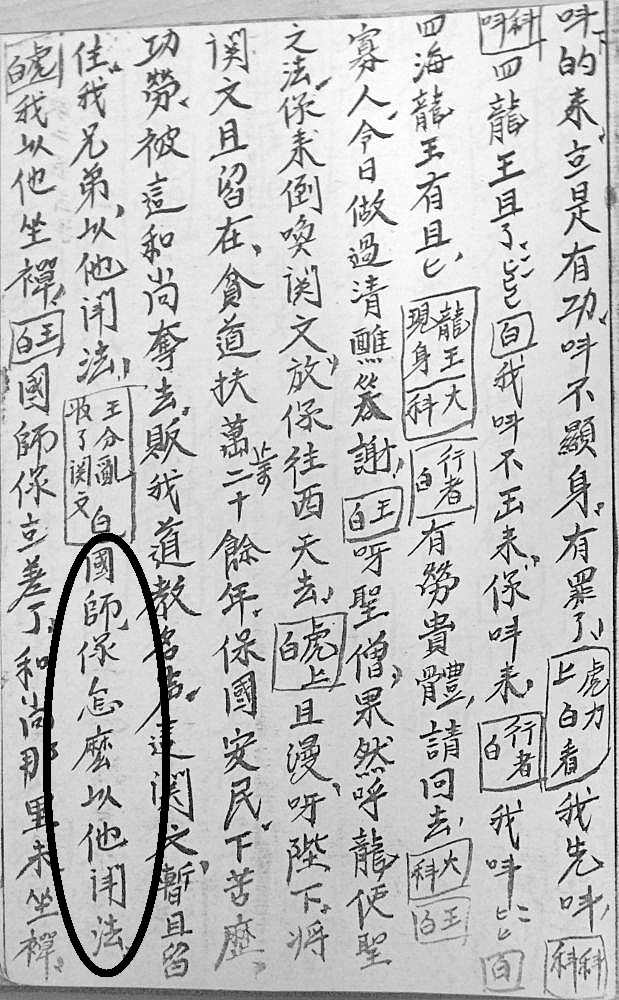 呌的来立是有功呌不顯身有罪了虎力上白看我先呌科科
呌科四龍王且了白我呌不玉来保呌来行者白我呌白
四海龍王有且匕龍王現身大科行者白有勞貴體請回去大科王白
寡人今日做過清醮答謝王白呀聖僧果然呼龍使聖
之法保来倒喚関文放保往西天去虎上白且漫呀陛下将
関文且留在貧道扶萬二十餘年保國安民下苦歷
功勞被這和尚奪去販我道教名這関文暫且留
住我兄弟以他鬥法王分亂白収了関文國師保怎麽以他鬥法
虎白我以他坐禪王白國師保立差了和尚那里未坐禪